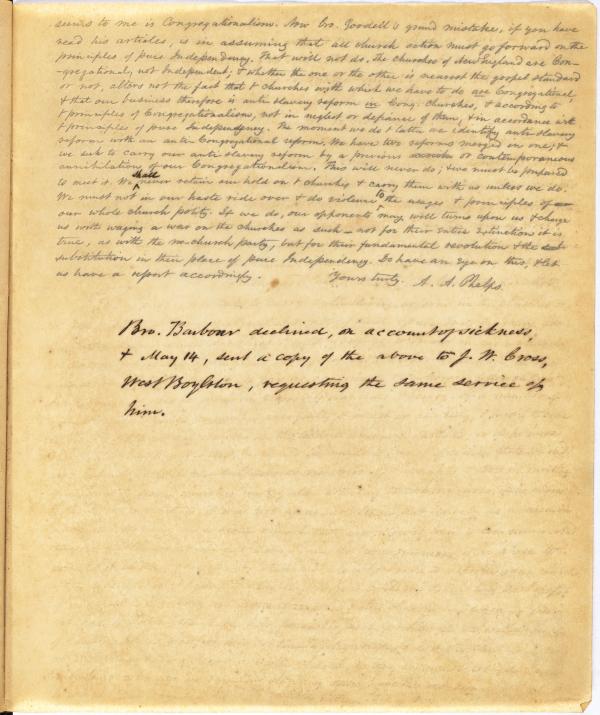 seems to me is Congregationalism. Now bro. Goodell's grand mistake, if you have
read his articles, is in assuming that all church action must go forward on the
principles of pure Independency. That will not do. The churches of New England are Con-
gregational, not Independent; & whether the one or the other is nearest the gospel standard
or not, alters not the fact that & churches with which we have to do are Congregational,
& that our business therefore is anti slavery reform in Cong. churches, & according to
& principles of Congregationalism, not in neglect or defiance of them, & in accordance with
& principles of pure Independency. The moment we do & latter we identify anti slavery
reform with an anti-Congregational reform. We have two reforms merged in one; &
we seek to carry our anti slavery reform by a previous or contemporaneous
annihilation of our Congregationalism. This will never do; & we must be prepared
to meet it. We shall never retain our hold on & churches & carry them with us unless we do.
We must not in our haste ride over & do violence to the usages & principles of
our whole church polity. If we do, our opponents may will turn upon us & charge
us with waging a war on the churches as such — not for their entire extinction it is
true, as with the no-church party, but for their fundamental revolution & the
substitution in their place of pure Independency. Do have an eye on this, & let
us have a report accordingly. Yours truly. A. A. Phelps
Bro. Barbour declined, on account of sickness,
& May 14, sent a copy of the above to J. W. Cross,
West Boylston, requesting the same service of
him.